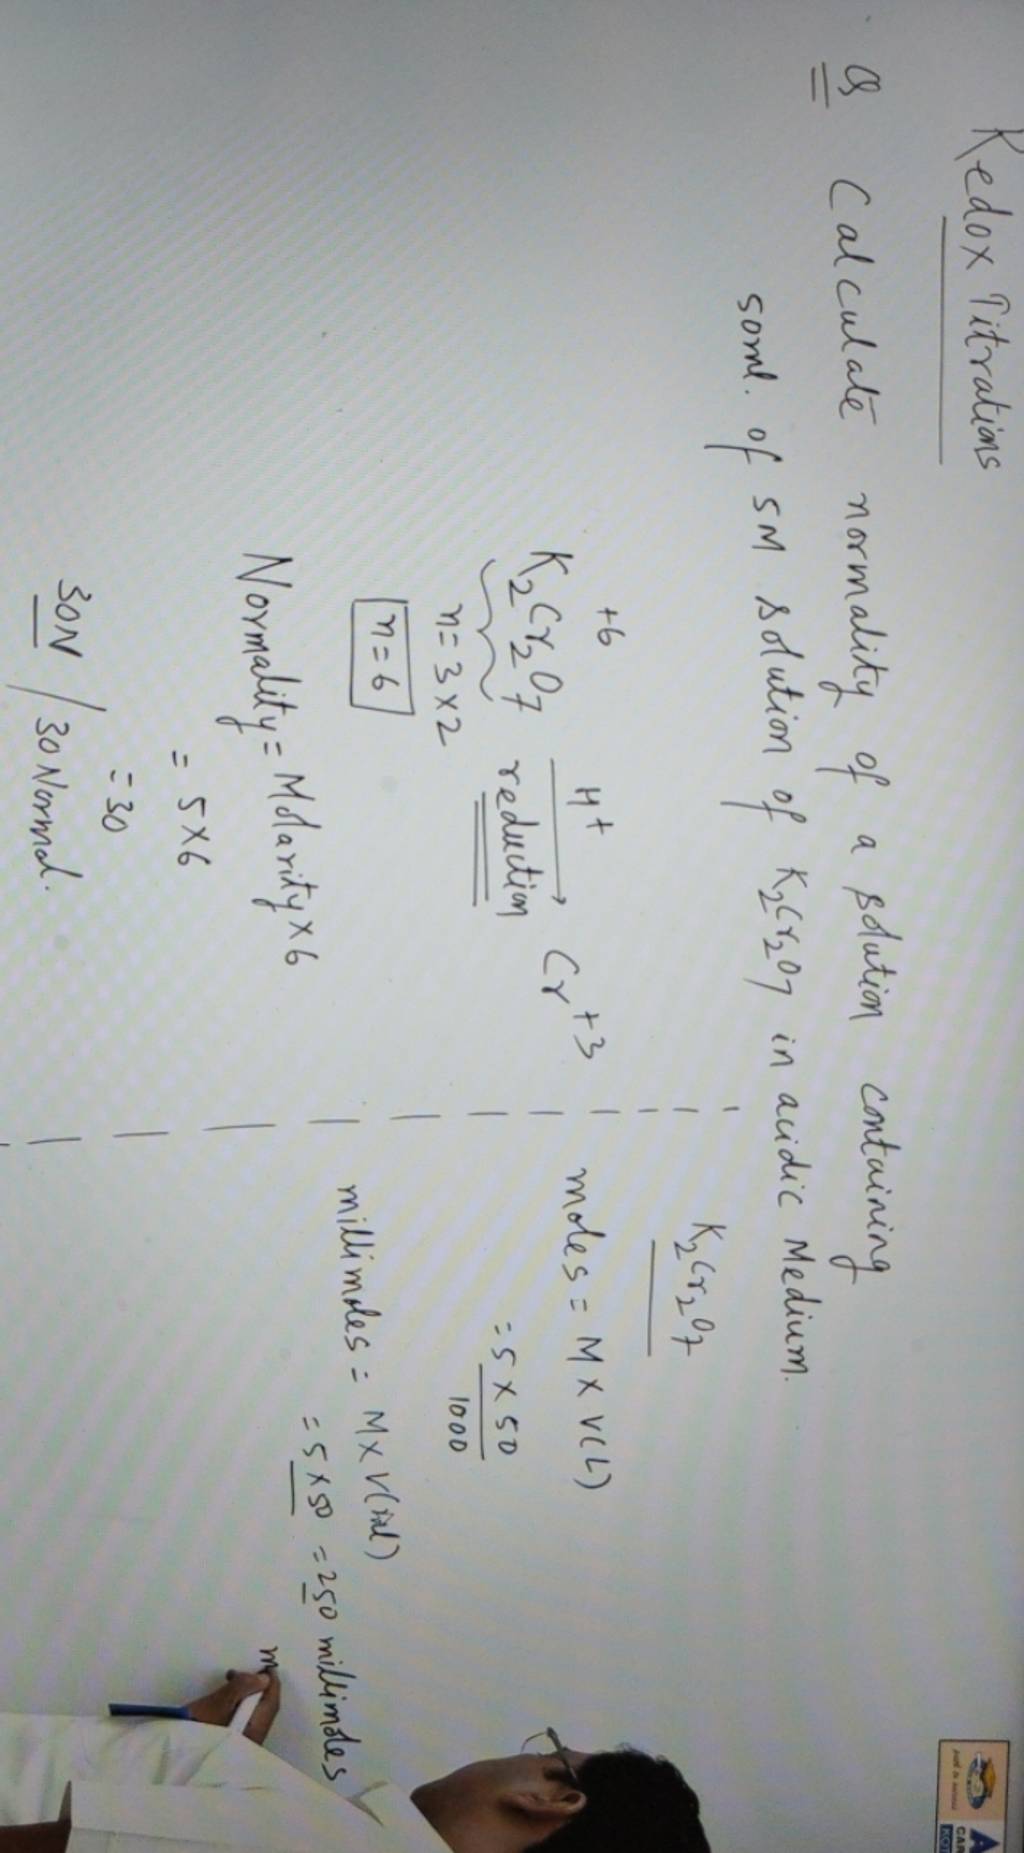 Redox Titrations
Q Calculate normality of a solution containing
50ml. of 5M solution of K2Cr2O7 in acidic Medium.
+6
K2Cr2O7 H+ Cr+3
reduction
n=3×2
n=6
Normality = Molarity×6
= 5×6
=30
30N / 30 Normal.
K2Cr2O7
moles = M × V(L)
= 5 × 50
1000
millimoles = M×V(ml)
= 5×50 = 250 millimoles
m
A
CAR
KOT